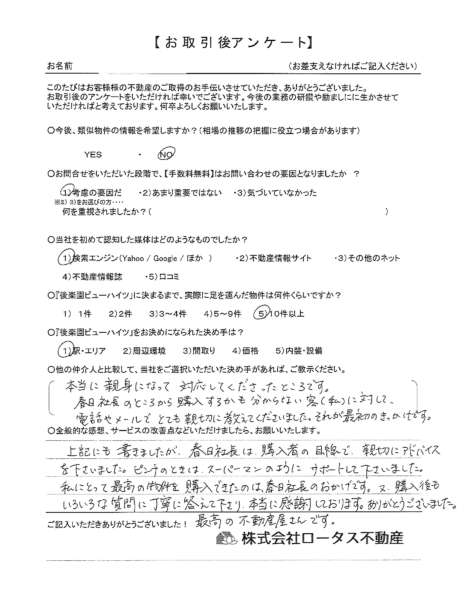 【お取引後アンケート】
お名前 (お差支えなければご記入ください)
このたびはお客様様の不動産のご取得のお手伝いさせていただき、ありがとうございました。
お取引後のアンケートをいただければ幸いでございます。今後の業務の研鑽や励ましにに生かさせて
いただければと考えております。何卒よろしくお願いいたします。
〇今後、類似物件の情報を希望しますか？(相場の推移の把握に役立つ場合があります)
YES ・ NO
〇お問合せをいただいた段階で、【手数料無料】はお問い合わせの要因となりましたか ？
1)考慮の要因だ ・2)あまり重要ではない ・3)気づいていなかった
※2) 3)をお選びの方‥‥
何を重視されましたか？( )
〇当社を初めて認知した媒体はどのようなものでしたか？
1)検索エンジン(Yahoo / Google / ほか ) ・2)不動産情報サイト ・3)その他のネット
4)不動産情報誌 ・5)口コミ
〇『後楽園ビューハイツ』に決まるまで、実際に足を運んだ物件は何件くらいですか？
1) 1件 2)2件 3)3～4件 4)5～9件 5)10件以上
〇『後楽園ビューハイツ』をお決めになられた決め手は？
1)駅・エリア 2)周辺環境 3)間取り 4)価格 5)内装・設備
〇他の仲介人と比較して、当社をご選択いただいた決め手があれば、ご教示ください。
本当に親身になって対応してくださったところです。
春日社長のところから購入するかも分からない客(私)に対して、
電話やメールでとても親切に教えてくださいました。それが最初のきっかけです。
〇全般的な感想、サービスの改善点などいただけましたら、お願いいたします。
上記にも書きましたが、春日社長は、購入者の目線で、親切にアドバイス
を下さいました。ピンチのときは、スーパーマンのように サポートして下さいました。
私にとって最高の物件を購入できたのは、春日社長のおかげです。又、購入後も
いろいろな質問に丁寧に答えて下さり、本当に感謝しております。ありがとうございました。
最高の不動産屋さんです。
ご記入いただきありがとうございました！
株式会社ロータス不動産